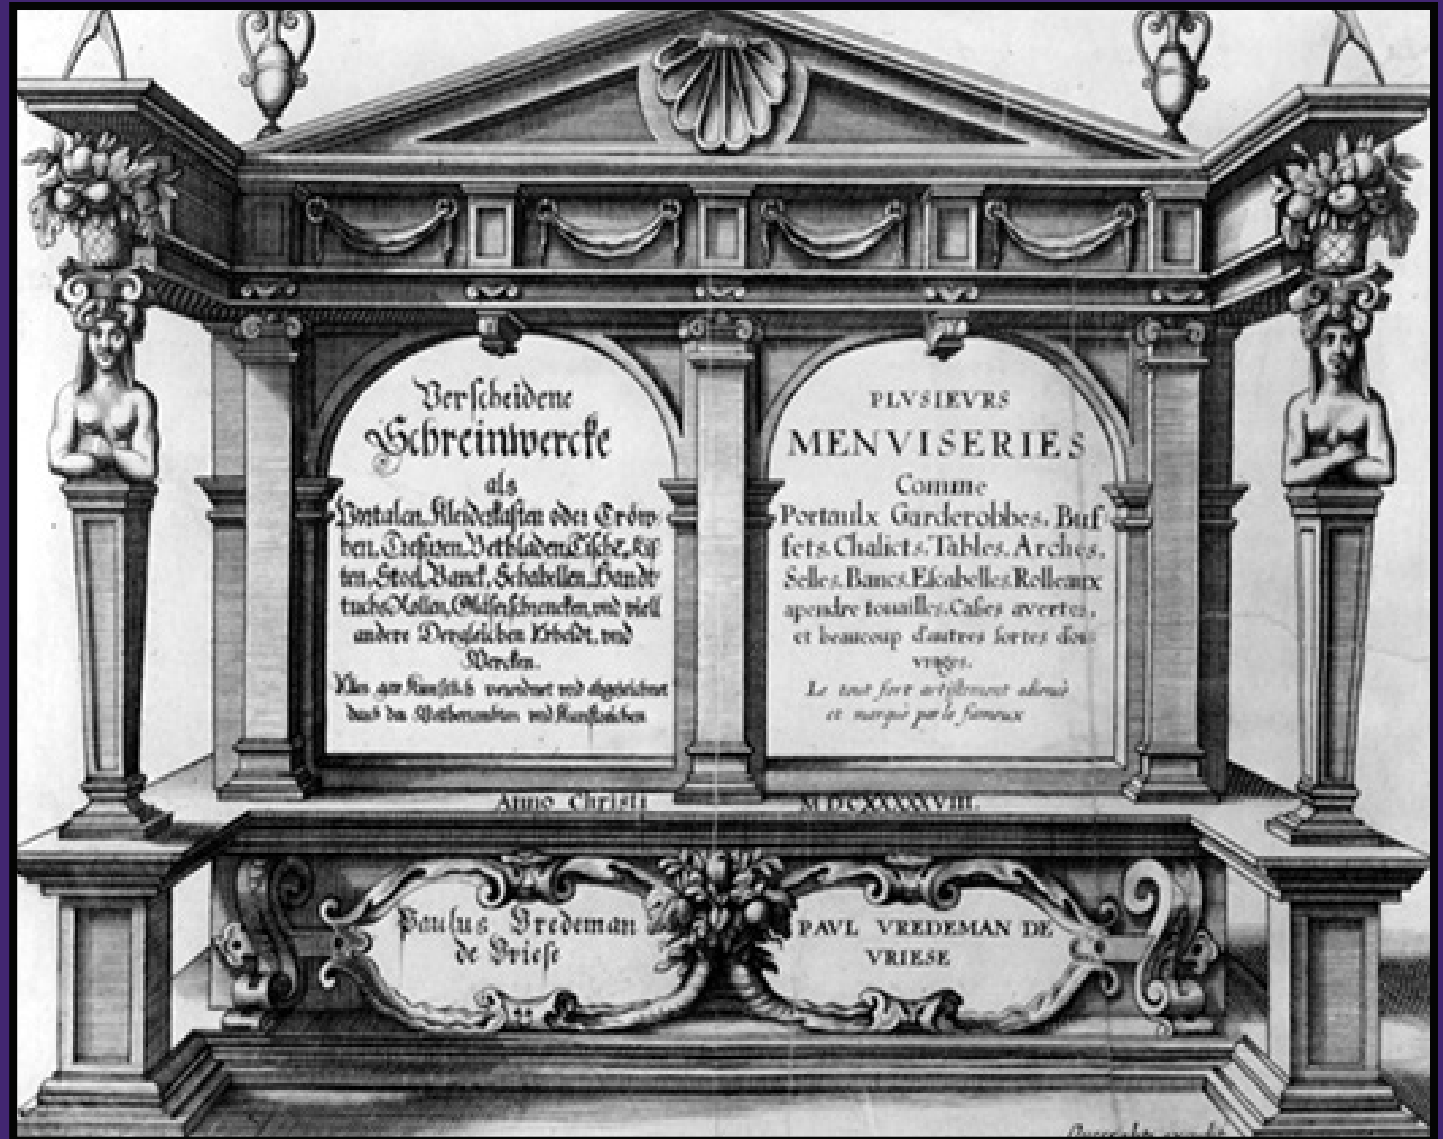 Verscheidene
Schreinwercke
als
Portalen, Kleiderkasten oder Tröw-
ben, Tresuren, Betbladen, Tische, Kis-
ten, Stoel, Banck, Schabellen, Handt-
tuchs Rollen, Gläserschrencken, vnd viell
andere Dergleichen Arbeidt, vnd
Wercken.
gar Kunstlich verordnet vnd abgezeichnet
vnd Kunstreichen
PLVSIEVRS
MENVISERIES
Comme
Portaulx Garderobbes, Buf-
fets, Chalicts, Tables, Arches,
Selles, Bancs, Escabelles, Rolleaux
apendre touailles, Casses avertes,
et beaucoup d'autres sortes d'ou-
vrages.
Le tout fort artistement
et marqué par le fameux
Anno Christi M.DCXXXXXVIII.
Paulus Vredeman
de Vriese
PAVL VREDEMAN DE
VRIESE